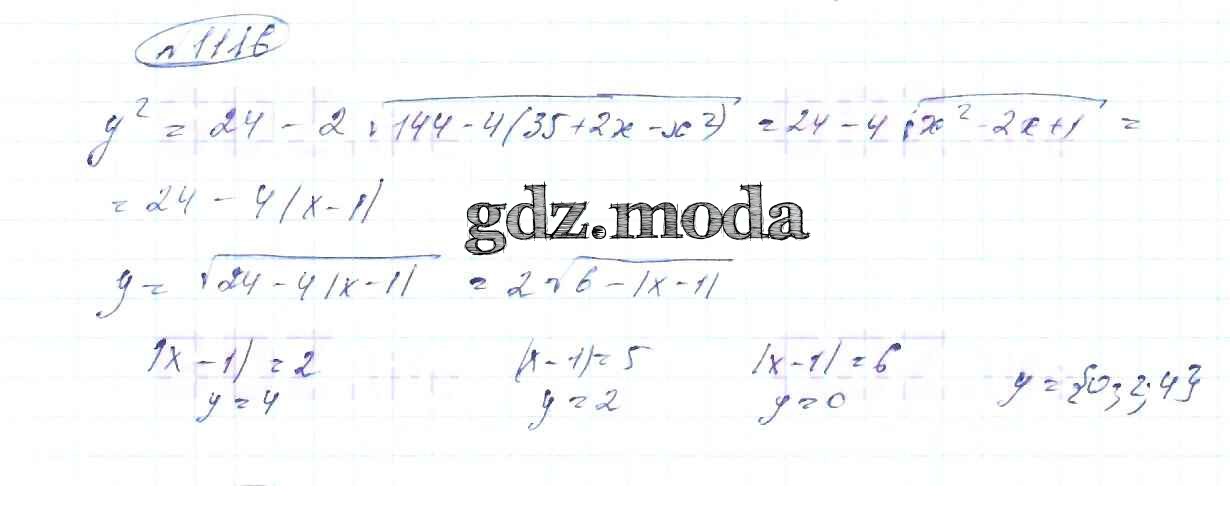 №1116
y² = 24 - 2√(144 - 4(35 + 2x - x²)) = 24 - 4√(x² - 2x + 1) =
= 24 - 4|x - 1|
gdz.moda
y = √(24 - 4|x - 1|) = 2√(6 - |x - 1|)
|x - 1| = 2 |x - 1| = 5 |x - 1| = 6
y = 4 y = 2 y = 0 y = {0; 2; 4}